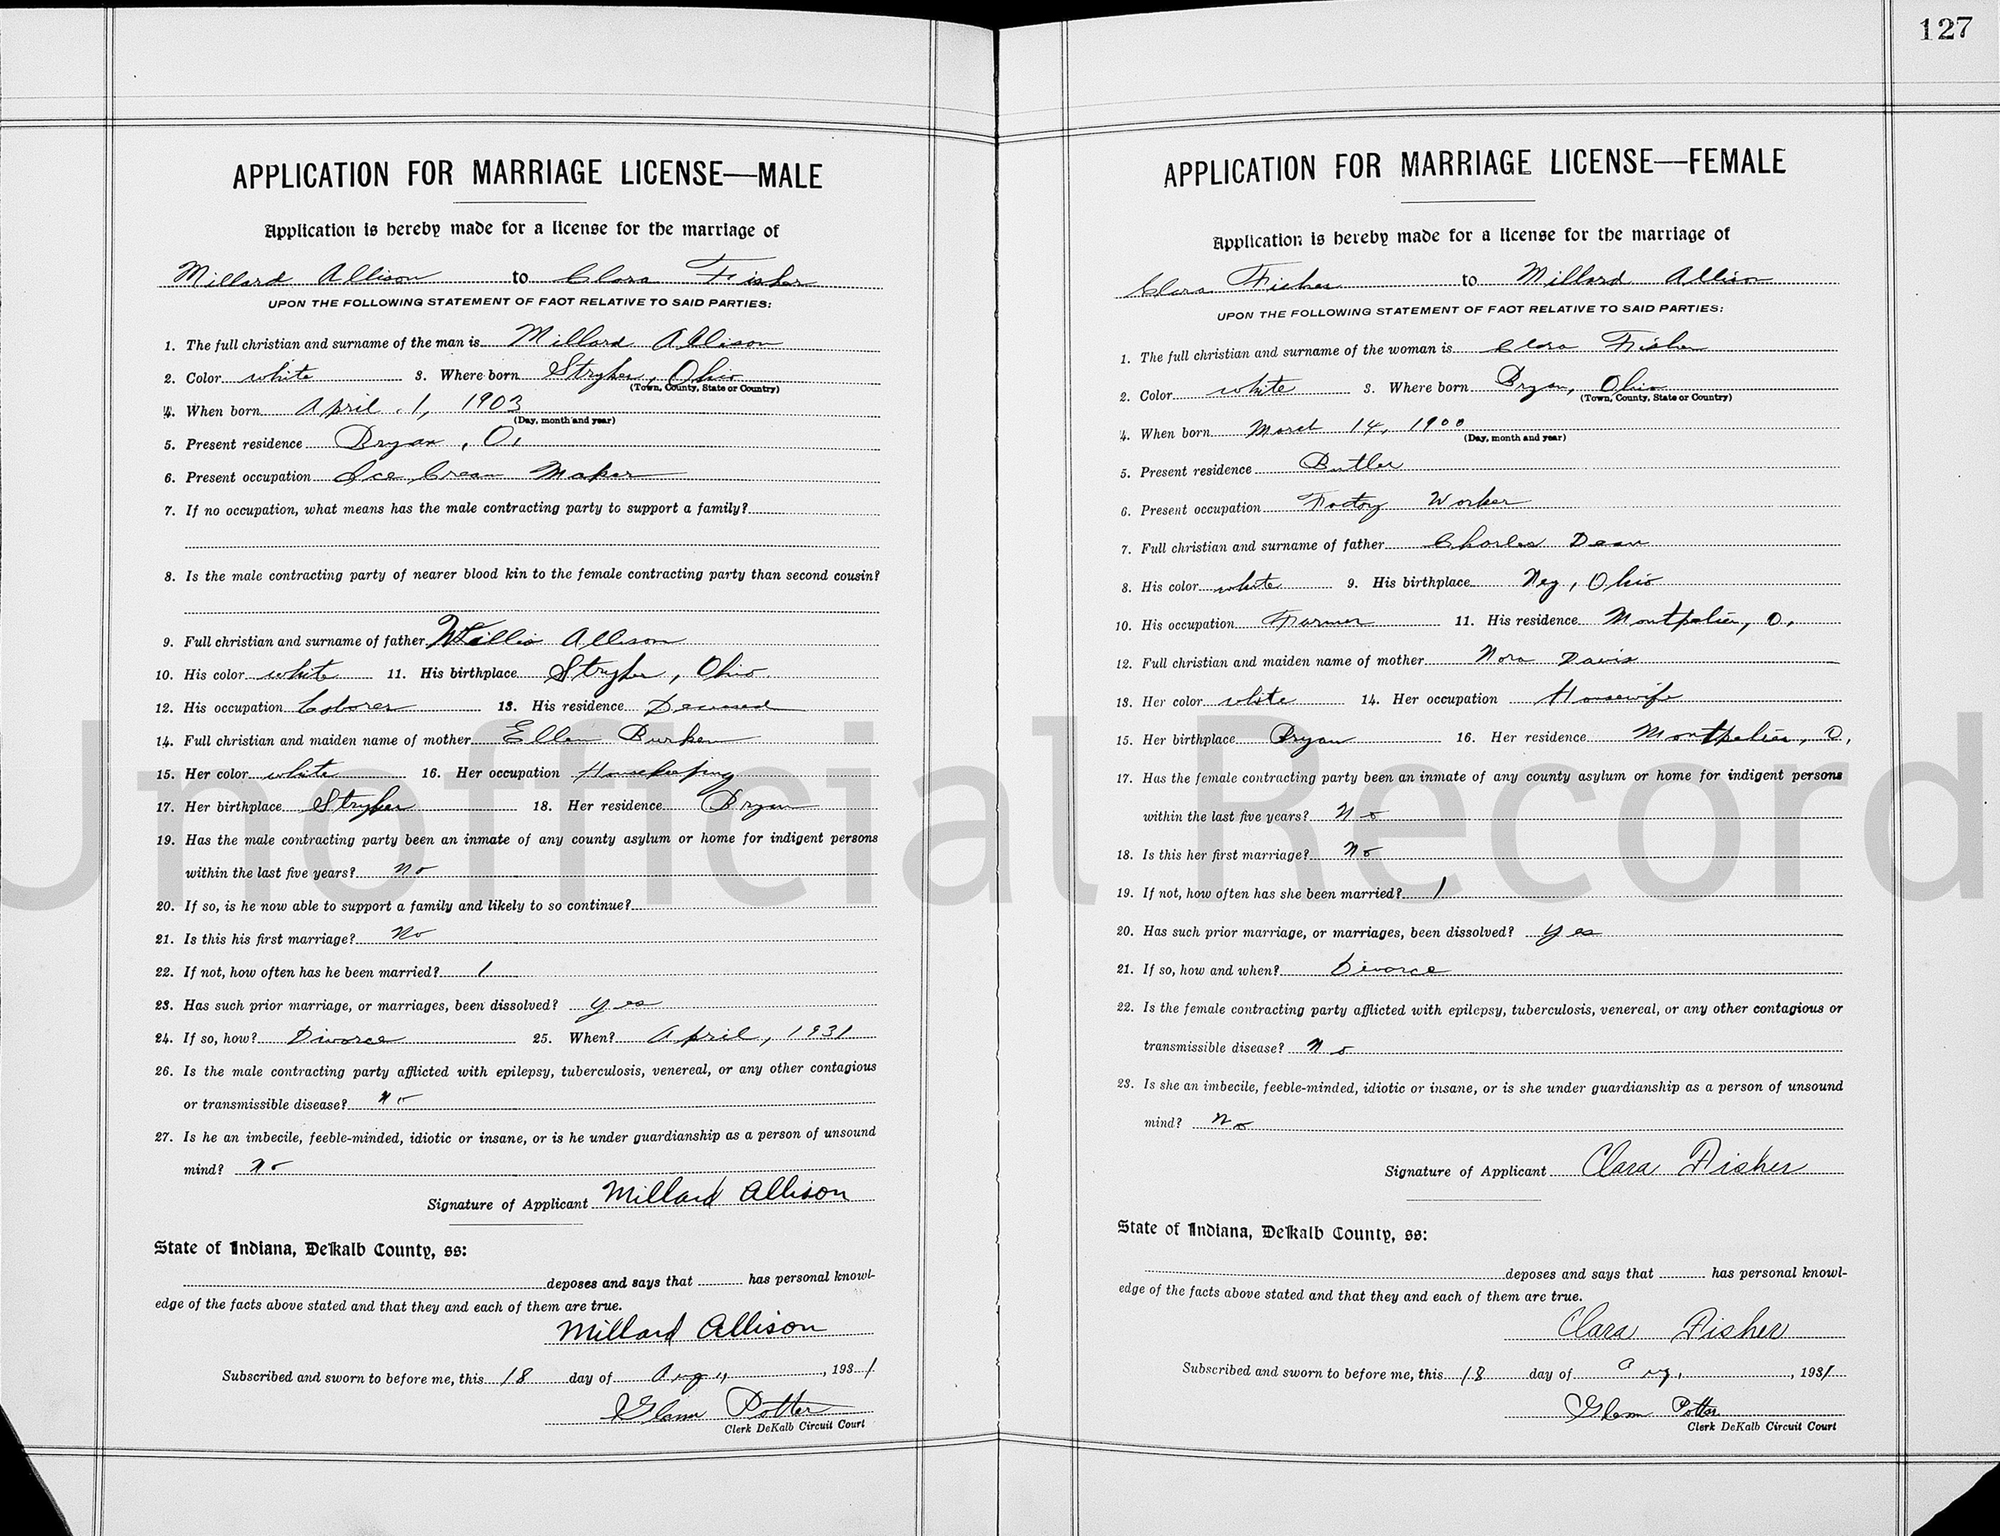 127
APPLICATION FOR MARRIAGE LICENSE—MALE
Application is hereby made for a license for the marriage of
Millard Allison to Clara Fisher
UPON THE FOLLOWING STATEMENT OF FACT RELATIVE TO SAID PARTIES:
1. The full christian and surname of the man is Millard Allison
2. Color white 3. Where born Stryker, Ohio
(Town, County, State or Country)
4. When born April 1, 1903
(Day, month and year)
5. Present residence Bryan, O.
6. Present occupation Ice Cream Maker
7. If no occupation, what means has the male contracting party to support a family?
8. Is the male contracting party of nearer blood kin to the female contracting party than second cousin?
9. Full christian and surname of father Willis Allison
10. His color white 11. His birthplace Stryker, Ohio
12. His occupation Laborer 13. His residence Deceased
14. Full christian and maiden name of mother Ellen
15. Her color white 16. Her occupation Housekeeping
17. Her birthplace Stryker 18. Her residence Bryan
19. Has the male contracting party been an inmate of any county asylum or home for indigent persons
within the last five years? No
20. If so, is he now able to support a family and likely to so continue?
21. Is this his first marriage? No
22. If not, how often has he been married? 1
23. Has such prior marriage, or marriages, been dissolved? yes
24. If so, how? Divorce 25. When? April, 1931
26. Is the male contracting party afflicted with epilepsy, tuberculosis, venereal, or any other contagious
or transmissible disease? No
27. Is he an imbecile, feeble-minded, idiotic or insane, or is he under guardianship as a person of unsound
mind? No
Signature of Applicant Millard Allison
State of Indiana, DeKalb County, ss:
deposes and says that has personal knowl-
edge of the facts above stated and that they and each of them are true.
Millard Allison
Subscribed and sworn to before me, this 18 day of Aug, 1931
Glenn Potter
Clerk DeKalb Circuit Court
APPLICATION FOR MARRIAGE LICENSE—FEMALE
Application is hereby made for a license for the marriage of
Clara Fisher to Millard Allison
UPON THE FOLLOWING STATEMENT OF FACT RELATIVE TO SAID PARTIES:
1. The full christian and surname of the woman is Clara Fisher
2. Color white 3. Where born Bryan, Ohio
(Town, County, State or Country)
4. When born March 14, 1900
(Day, month and year)
5. Present residence Butler
6. Present occupation Factory Worker
7. Full christian and surname of father Charles Dean
8. His color white 9. His birthplace Ney, Ohio
10. His occupation Farmer 11. His residence Montpelier, O.
12. Full christian and maiden name of mother Nora Davis
13. Her color white 14. Her occupation Housewife
15. Her birthplace Bryan 16. Her residence Montpelier, O,
17. Has the female contracting party been an inmate of any county asylum or home for indigent persons
within the last five years? No
18. Is this her first marriage? No
19. If not, how often has she been married? 1
20. Has such prior marriage, or marriages, been dissolved? yes
21. If so, how and when? Divorce
22. Is the female contracting party afflicted with epilepsy, tuberculosis, venereal, or any other contagious or
transmissible disease? No
23. Is she an imbecile, feeble-minded, idiotic or insane, or is she under guardianship as a person of unsound
mind? No
Signature of Applicant Clara Fisher
State of Indiana, DeKalb County, ss:
deposes and says that has personal knowl-
edge of the facts above stated and that they and each of them are true.
Clara Fisher
Subscribed and sworn to before me, this 18 day of Aug, 1931
Glenn Potter
Clerk DeKalb Circuit Court
Unofficial Record